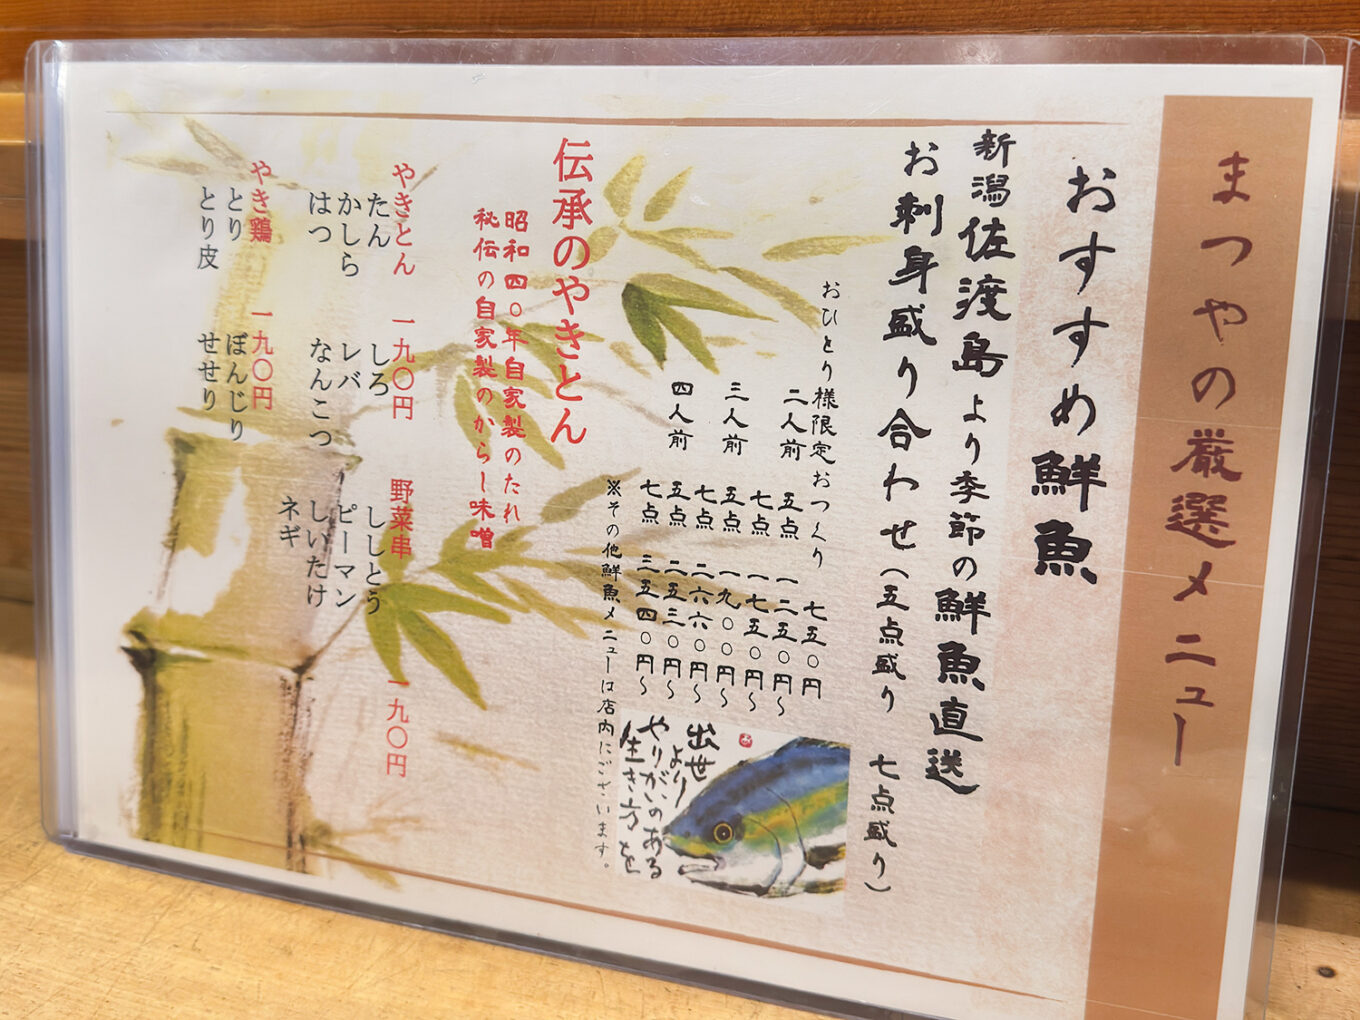 まつやの厳選メニュー
おすすめ鮮魚
新潟佐渡島より季節の鮮魚直送
お刺身盛り合わせ(五点盛り 七点盛り)
おひとり様限定おつくり 七五〇円
二人前 五点 一二五〇円~
七点 一七五〇円~
三人前 五点 一九〇〇円~
七点 二六六〇円~
四人前 五点 二五三〇円~
七点 三五四〇円~
※その他鮮魚メニューは店内にございます。
出世
より
やりがいのある
生き方を
伝承のやきとん
昭和四〇年自家製のたれ
秘伝の自家製のからし味噌
やきとん 一九〇円
たん しろ
かしら レバ
はつ なんこつ
野菜串 一九〇円
ししとう
ピーマン
しいたけ
ネギ
やき鶏 一九〇円
とり ぼんじり
とり皮 せせり